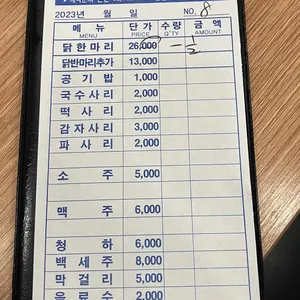 2023년 월 일 NO. 8
메뉴 MENU 단가 PRICE 수량 Q'TY 금액 AMOUNT
닭한마리 26,000 - 1/2
닭반마리추가 13,000
공기밥 1,000
국수사리 2,000
떡사리 2,000
감자사리 3,000
파사리 2,000
소주 5,000
맥주 6,000
청하 6,000
백세주 8,000
막걸리 5,000
음료수 2,000